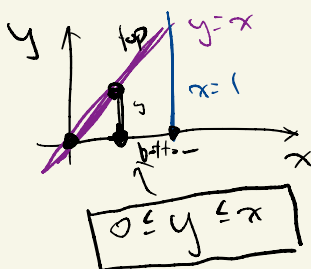 y
top
y=x
x=1
y
bottom
x
0 ≤ y ≤ x